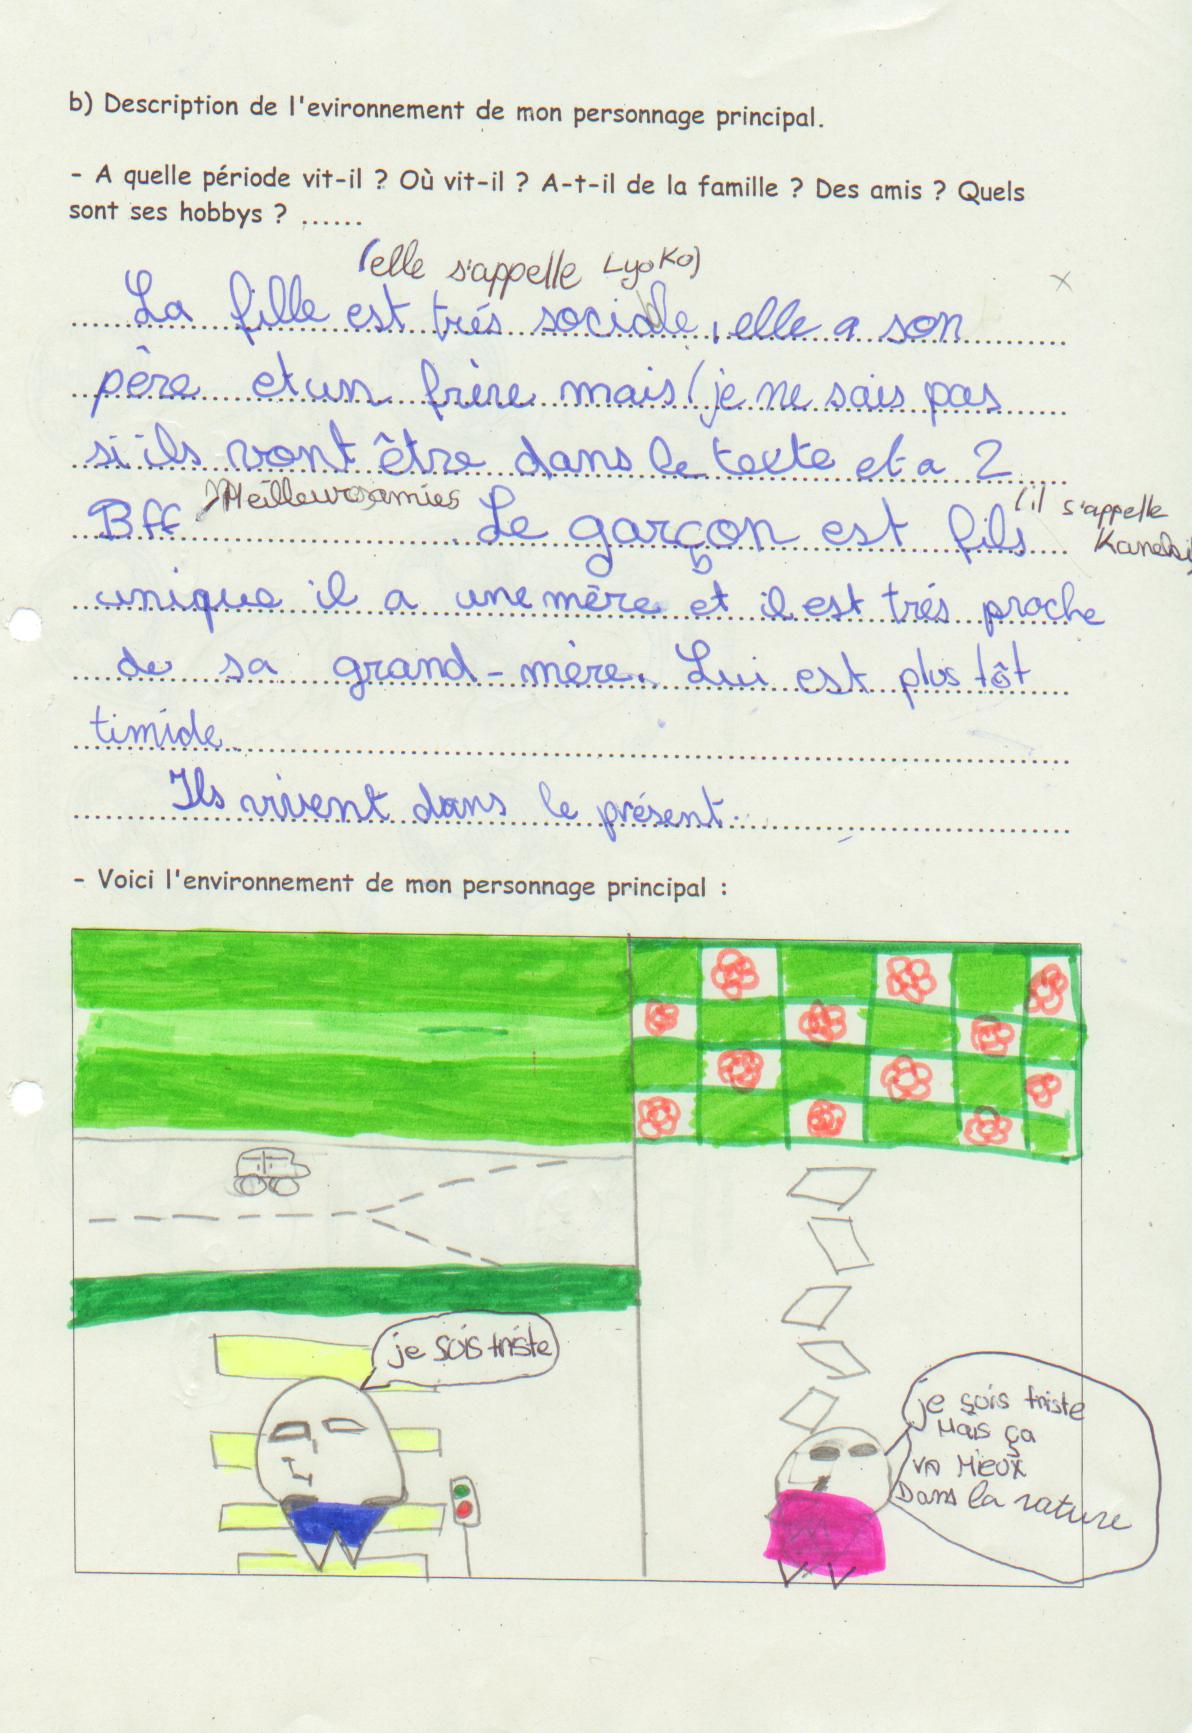 b) Description de l'evironnement de mon personnage principal.
- A quelle période vit-il ? Où vit-il ? A-t-il de la famille ? Des amis ? Quels
sont ses hobbys ? ......
(elle s'appelle LyoKo)
La fille est trés sociale, elle a son
père et un frère mais (je ne sais pas
si ils vont être dans le texte et a 2
Bff Meilleurs amies . Le garçon est fils (il s'appelle
unique il a une mère et il est trés proche
de sa grand-mère. Lui est plus tôt
timide
Ils vivent dans le présent.
- Voici l'environnement de mon personnage principal :
je sois triste
je sois triste
Mais ça
VA MIEUX
Dans la nature